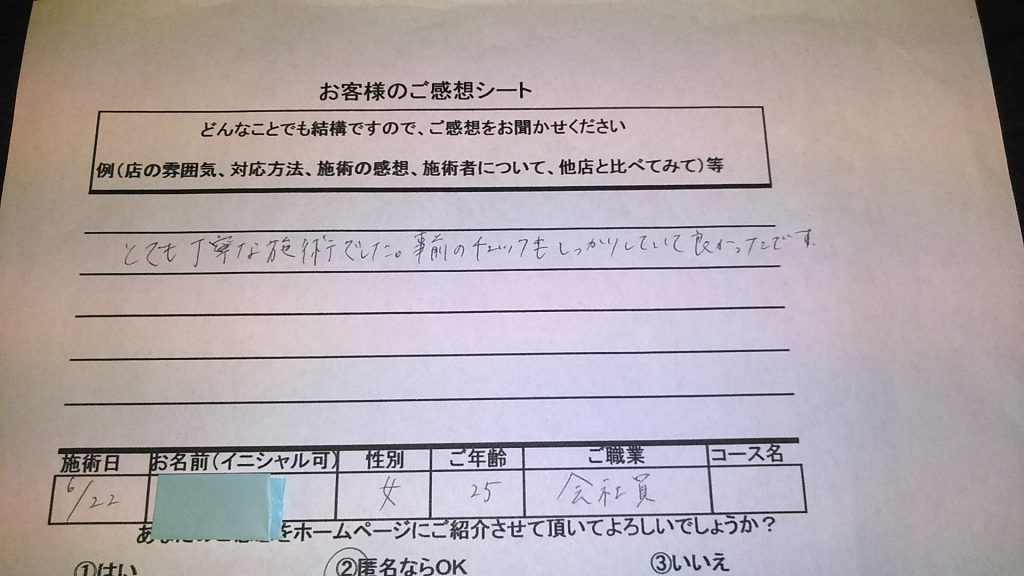 お客様のご感想シート
どんなことでも結構ですので、ご感想をお聞かせください
例(店の雰囲気、対応方法、施術の感想、施術者について、他店と比べてみて)等
とても丁寧な施術でした。事前のチェックもしっかりしていて良かったです。
施術日 お名前(イニシャル可) 性別 ご年齢 ご職業 コース名
6/22 女 25 会社員
をホームページにご紹介させて頂いてよろしいでしょうか?
①はい ②匿名ならOK ③いいえ